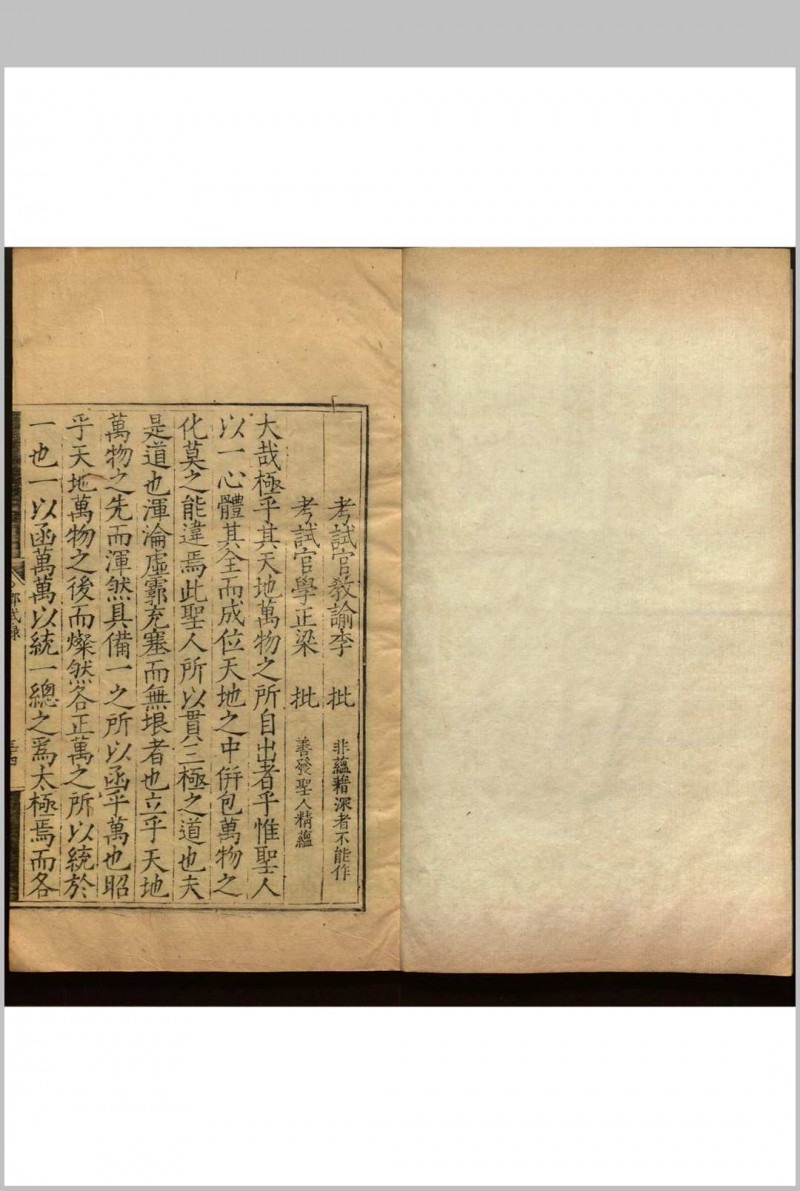 考試官教諭李　批　非蘊藉深者不能作
考試官學正梁　批　善發聖人精蘊
大哉極乎其天地萬物之所自出者乎惟聖人
以一心體其全而成位天地之中倂包萬物之
化莫之能違焉此聖人所以貫三極之道也夫
是道也渾淪虛靈充塞而無垠者也立乎天地
萬物之先而渾然具備一之所以函乎萬也昭
乎天地萬物之後而燦然各正萬之所以統於
一也一以函萬萬以統一總之爲太極焉而各